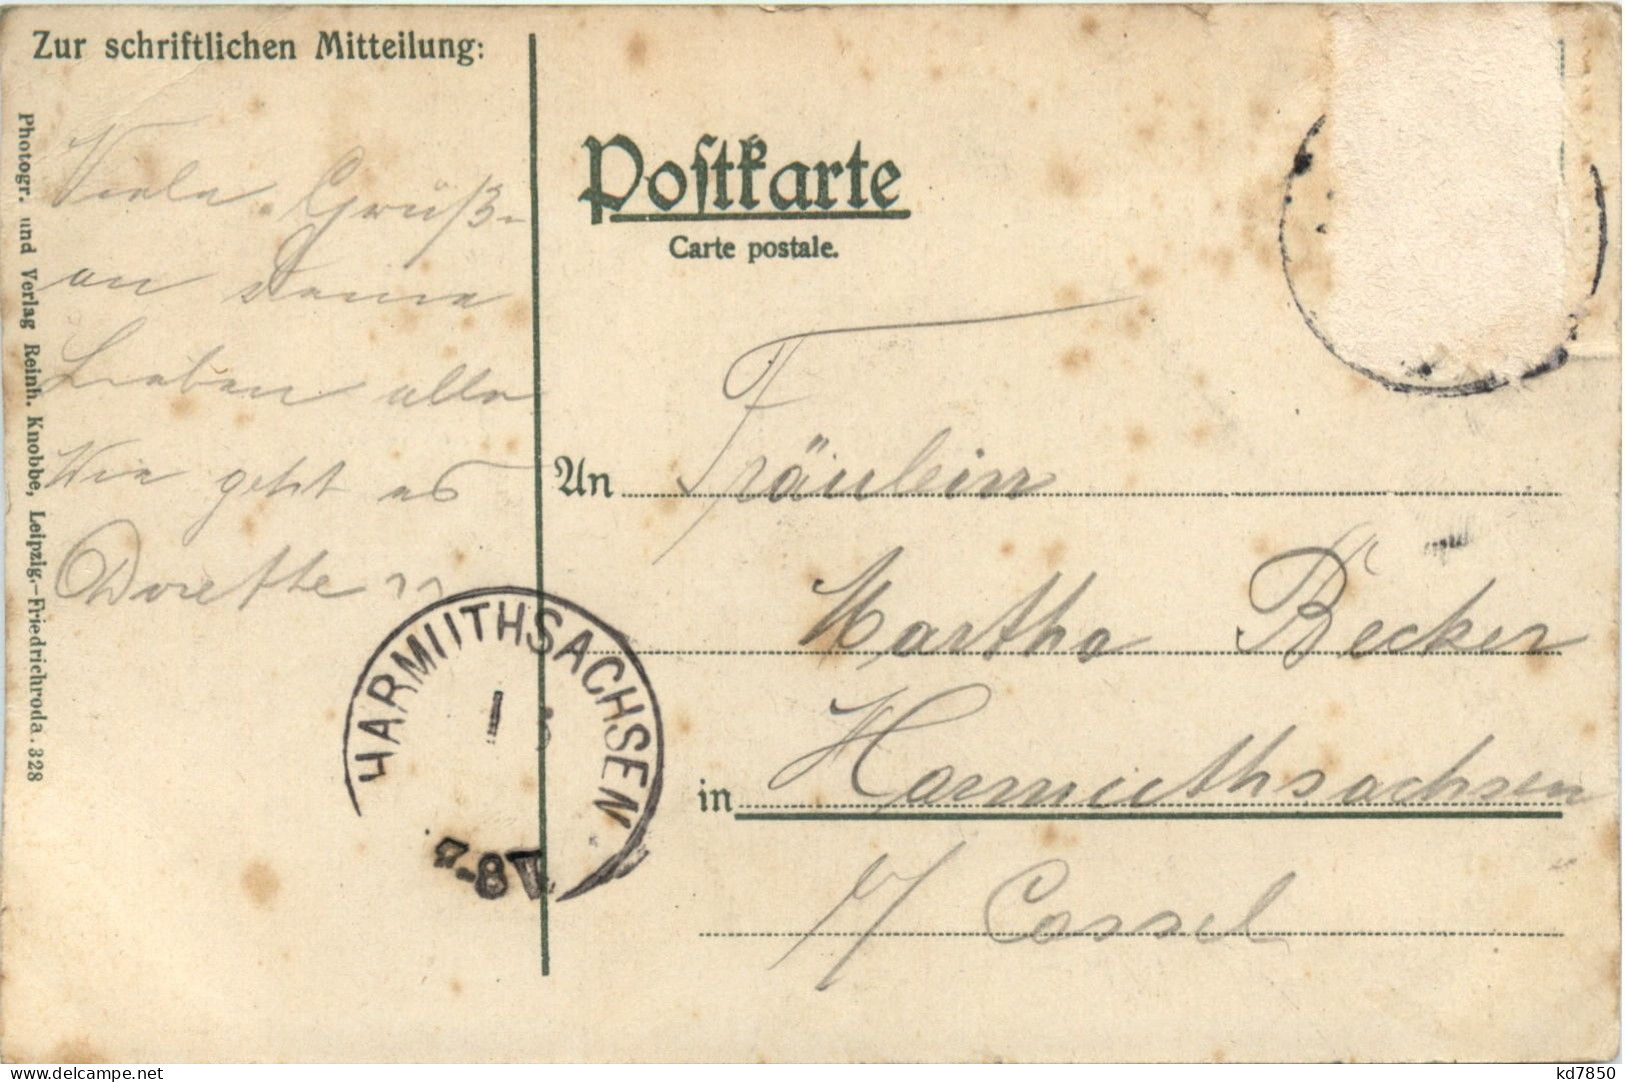 Zur schriftlichen Mitteilung:
Viele Grüße
an Deine
Lieben alle
Wie geht es
Dorette
Photogr. und Verlag Reinh. Knobbe, Leipzig-Friedrichroda. 328
Postkarte
Carte postale.
An Fräulein
Martha Becker
in Harmuthsachsen
Cassel
HARMUTHSACHSEN
7-8V
www.delcampe.net
kd7850